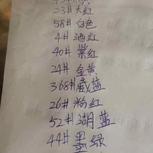 23# 大红
58# 白色
4# 酒红
40# 紫红
24# 金黄
368# 藏蓝
26# 粉红
52# 湖蓝
44# 墨绿